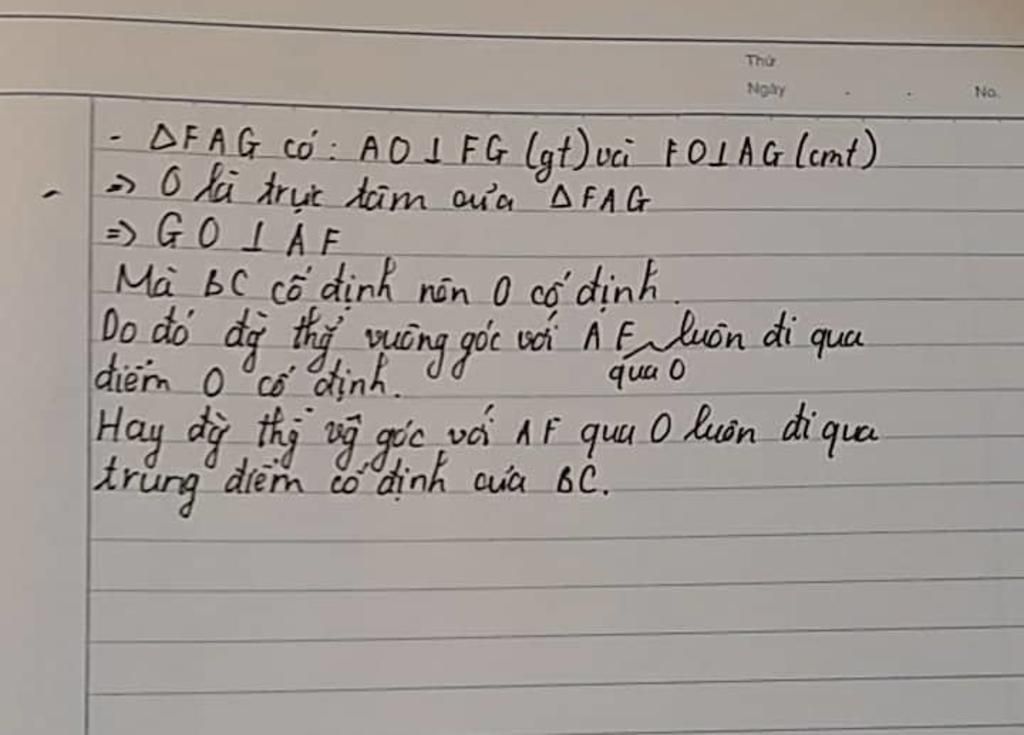 Thứ
Ngày . . No.
- ΔFAG có: AO⊥FG (gt) và FO⊥AG (cmt)
=> O là trực tâm của ΔFAG
=> GO ⊥ AF
Mà BC cố định nên O cố định.
Do đó đg thg vuông góc với AF luôn đi qua
qua O
điểm O cố định.
Hay đg thg vg góc với AF qua O luôn đi qua
trung điểm cố định của BC.